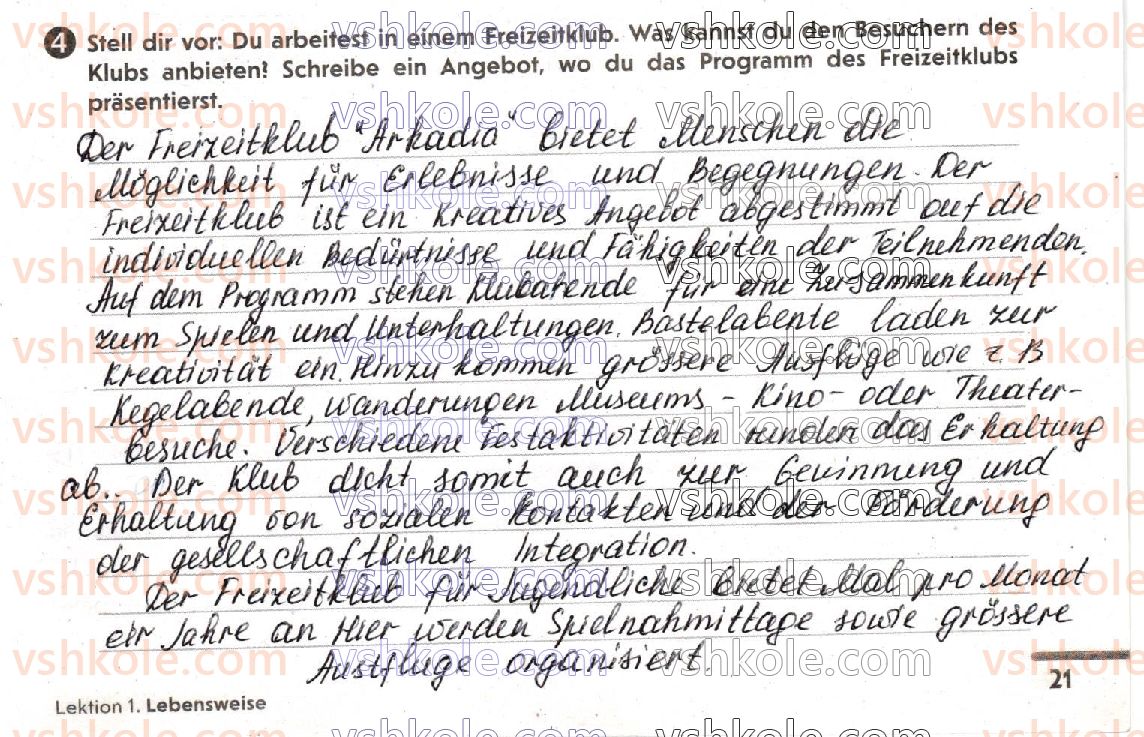 4 Stell dir vor: Du arbeitest in einem Freizeitklub. Was kannst du den Besuchern des
Klubs anbieten? Schreibe ein Angebot, wo du das Programm des Freizeitklubs
präsentierst.
Der Freizeitklub "Arkadia" bietet Menschen die
Möglichkeit für Erlebnisse und Begegnungen. Der
Freizeitklub ist ein kreatives Angebot abgestimmt auf die
individuellen Bedürtnisse und Fähigkeiten der Teilnehmenden.
Auf dem Programm stehen Klubabende für eine Zusammenkunft
zum Spielen und Unterhaltungen. Bastelabente laden zur
Kreativität ein. Hinzu kommen grössere Ausflüge wie z. B
Kegelabende, Wanderungen Museums - Kino- oder Theater-
besuche. Verschiedene Festaktivitäten runden das Erhaltung
ab.. Der Klub dicht somit auch zur Gewinnung und
Erhaltung von sozialen Kontakten und der Förderung
der gesellschaftlichen Integration.
Der Freizeitklub für Jugendliche bietet Mal pro Monat
eir Jahre an Hier werden Spielnahmittage sowie grössere
Austfluge organisiert.
21
Lektion 1. Lebensweise
vshkole.com